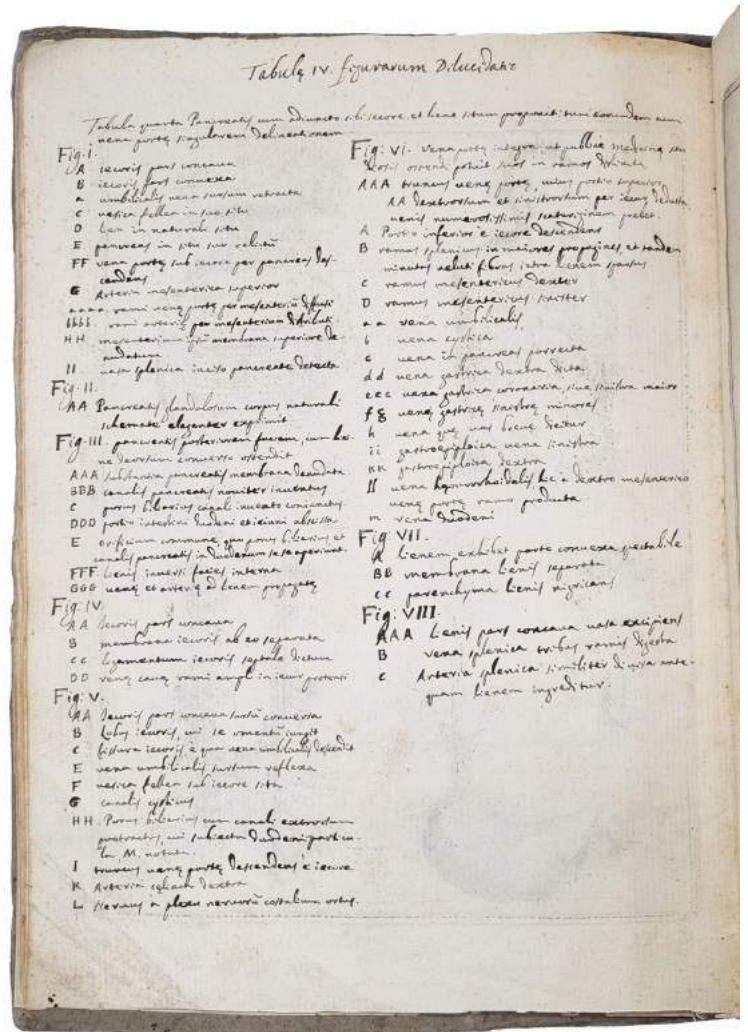 Tabulę IV. figurarum Dilucidatio
Tabula quarta Pancreatis cum adiuncto sibi iecore et liene situm proponit tum earundem cum
vena portę singularem delineationem
Fig. I.
A iecoris pars concava
B iecoris pars convexa
a umbilicalis vena sursum retracta
C vesica fellea in suo situ
D Lien in naturali situ
E pancreas in situ suo relictū
FF vena portę sub iecore per pancreas des-
cendens
G Arteria mesenterica superior
aaaa rami venę portę per mesenteriū diffusi
bbbb. rami arterię per mesenterium distributi
HH mesenterium membrana superiore de-
nudatum
II vasa splenica inciso pancreate detecta
Fig. II.
AA Pancreatis glandulosum corpus naturali
schemate eleganter exprimit
Fig. III. pancreatis posteriorem faciem, cum lie-
ne deorsum converso ostendit
AAA substantia pancreatis membrana denudata
BBB canalis pancreatis noviter inventus
C porus biliarius canali coniunctus
DDD portio intestini duodeni et ieiuni abscissa
E orificium commune, quo porus biliarius et
canalis pancreatis in duodenum sese aperiunt.
FFF Lienis inversi facies interna
GGG venę et arterię ad Lienem propagatę
Fig. IV.
AA Iecoris pars concava
B membrana iecoris ab eo separata
CC Ligamentum iecoris septale dictum
DD venę cavę rami ampli in iecur protensi
Fig. V.
AA Iecoris pars concava sursū conversa
B Lobus iecoris, cui se omentū iungit
C fissura iecoris, è qua vena umbilicalis descendit
E vena umbilicalis sursum reflexa
F vesica fellea sub iecore sita
G canalis cysticus
HH. Porus biliarius cum canali extrorsum
protractus, cui subiecta duodeni particu-
la, M. notata.
I truncus venę portę descendens è iecore
K Arteria cęliaca dextra
L Nervus à plexu nervorū costalium ortus.
Fig. VI. vena portę integra, ut publicè medicinę stu-
diosis ostendi potuit suos in ramos divisa
AAA truncus venę portę, cuius portio superior
AA dextrorsum et sinistrorsum per iecur deducta
venis numerosissimis scaturiginem prębet.
A Portio inferior è iecore descendens
B ramus splenicus in maiores propagines et tandem
minutas veluti fibras intra Lienem sparsus
C ramus mesentericus dexter
D ramus mesentericus sinister
aa vena umbilicalis
b vena cystica
c vena in pancreas porrecta
dd vena gastrica dextra dicta
eee vena gastrica coronaria, sive sinistra maior
fg venę gastricę sinistrę minores
h vena quę vas breve dicitur
ii gastroepiploica vena sinistra
kk gastroepiploica dextra
ll vena hęmorrhoidalis, hic à dextro mesenterico
venę portę ramo producta
m vena duodeni
Fig. VII.
A Lienem exhibet parte convexa spectabilē
BB membrana Lienis separata
CC parenchyma Lienis nigricans
Fig. VIII.
AAA Lienis pars concava vasa excipiens
B vena splenica tribus ramis digesta
C Arteria splenica similiter divisa ante-
quam Lienem ingreditur.